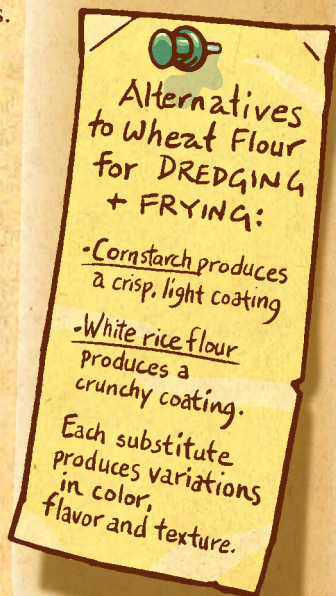 s.
Alternatives
to Wheat Flour
for DREDGING
+ FRYING:
•Cornstarch produces
a crisp, light coating
•White rice flour
produces a
crunchy coating.
Each substitute
produces variations
in color,
flavor and texture.